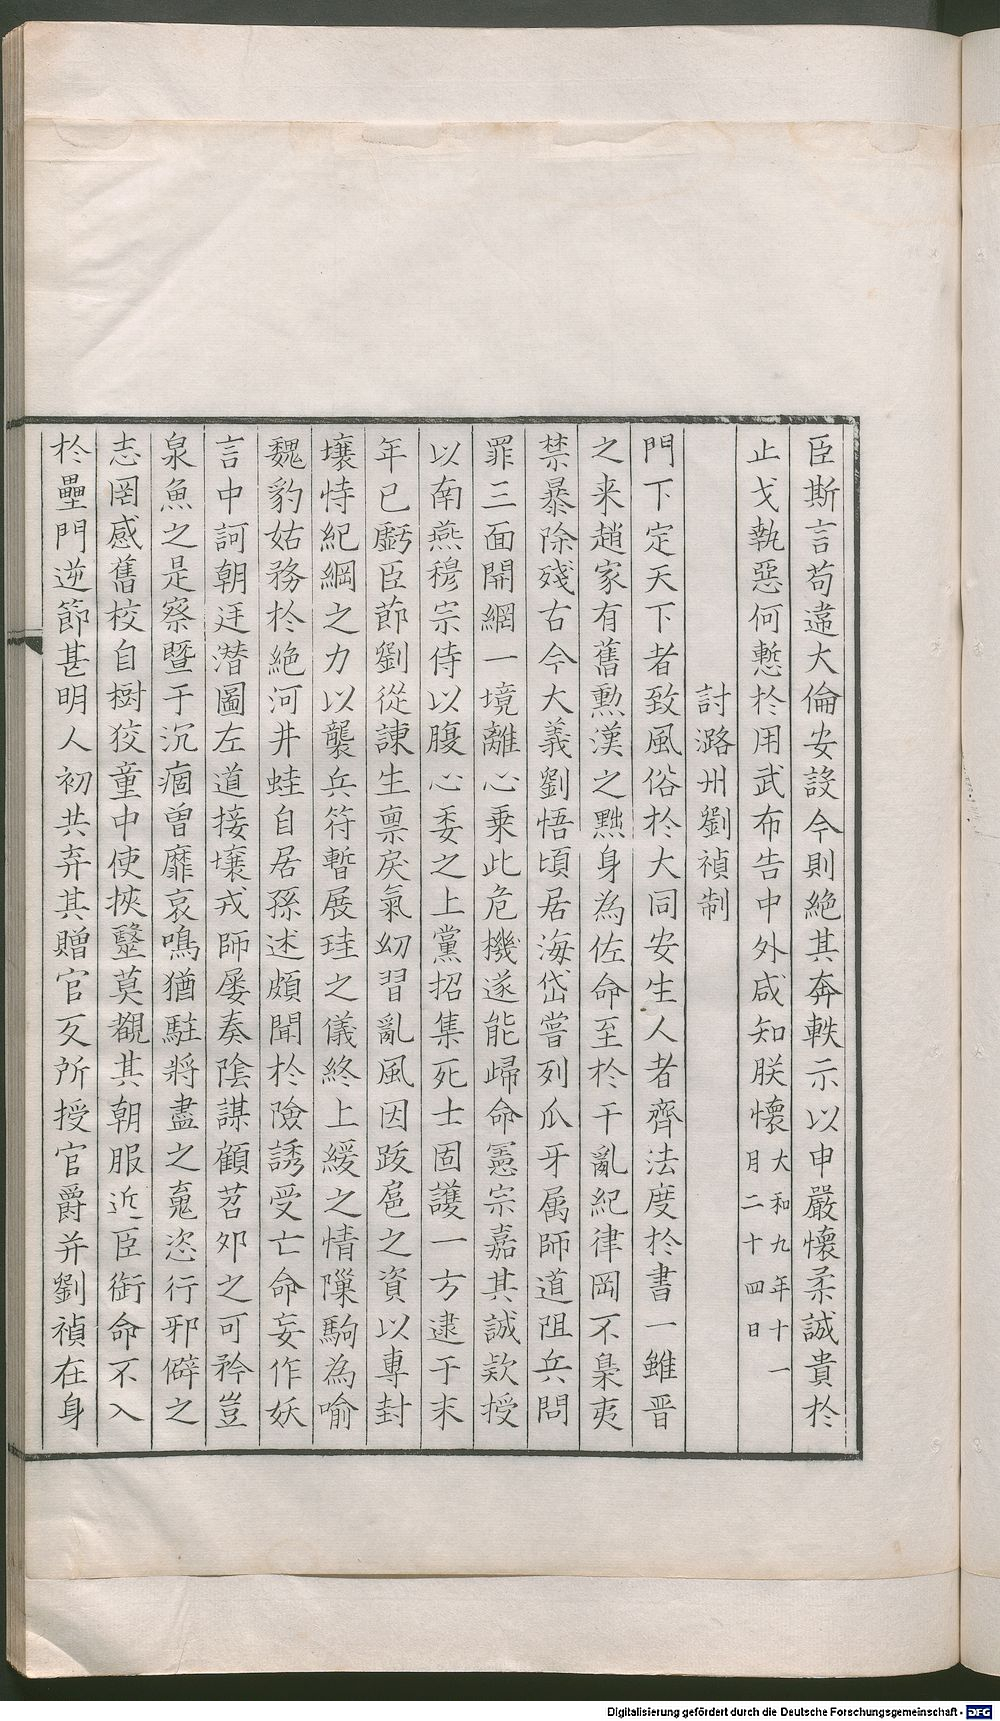 臣斯言苟違大倫安設今則絶其奔軼示以申嚴懷柔誠貴於
止戈執惡何慙於用武布告中外咸知朕懷大和九年十一月二十四日
討潞州劉禎制
門下定天下者致風俗於大同安生人者齊法度於書一雖晋
之来趙家有舊勲漢之黥身為佐命至於干亂紀律罔不梟夷
禁暴除殘古今大義劉悟頃居海岱嘗列爪牙属師道阻兵問
罪三面開網一境離心乗此危機遂能歸命憲宗嘉其誠欵授
以南燕穆宗侍以腹心委之上黨招集死士固護一方逮于末
年已虧臣節劉從諌生禀戾氣㓜習亂風因跋扈之資以専封
壌恃紀綱之力以襲兵符暫展珪之儀終上緩之情隟駒為喻
魏豹姑務於絶河井蛙自居孫述頗聞於險誘受亡命妄作妖
言中訶朝廷潜圖左道接壌戎師屡奏陰謀顧苕夘之可矜豈
泉魚之是察曁于沉痼曽靡哀鳴猶駐將盡之䰟恣行邪僻之
志罔感舊校自樹狡童中使挾毉莫覩其朝服近臣銜命不入
於壘門逆節甚明人初共弃其贈官及所授官爵并劉禎在身
Digitalisierung gefördert durch die Deutsche Forschungsgemeinschaft - DFG